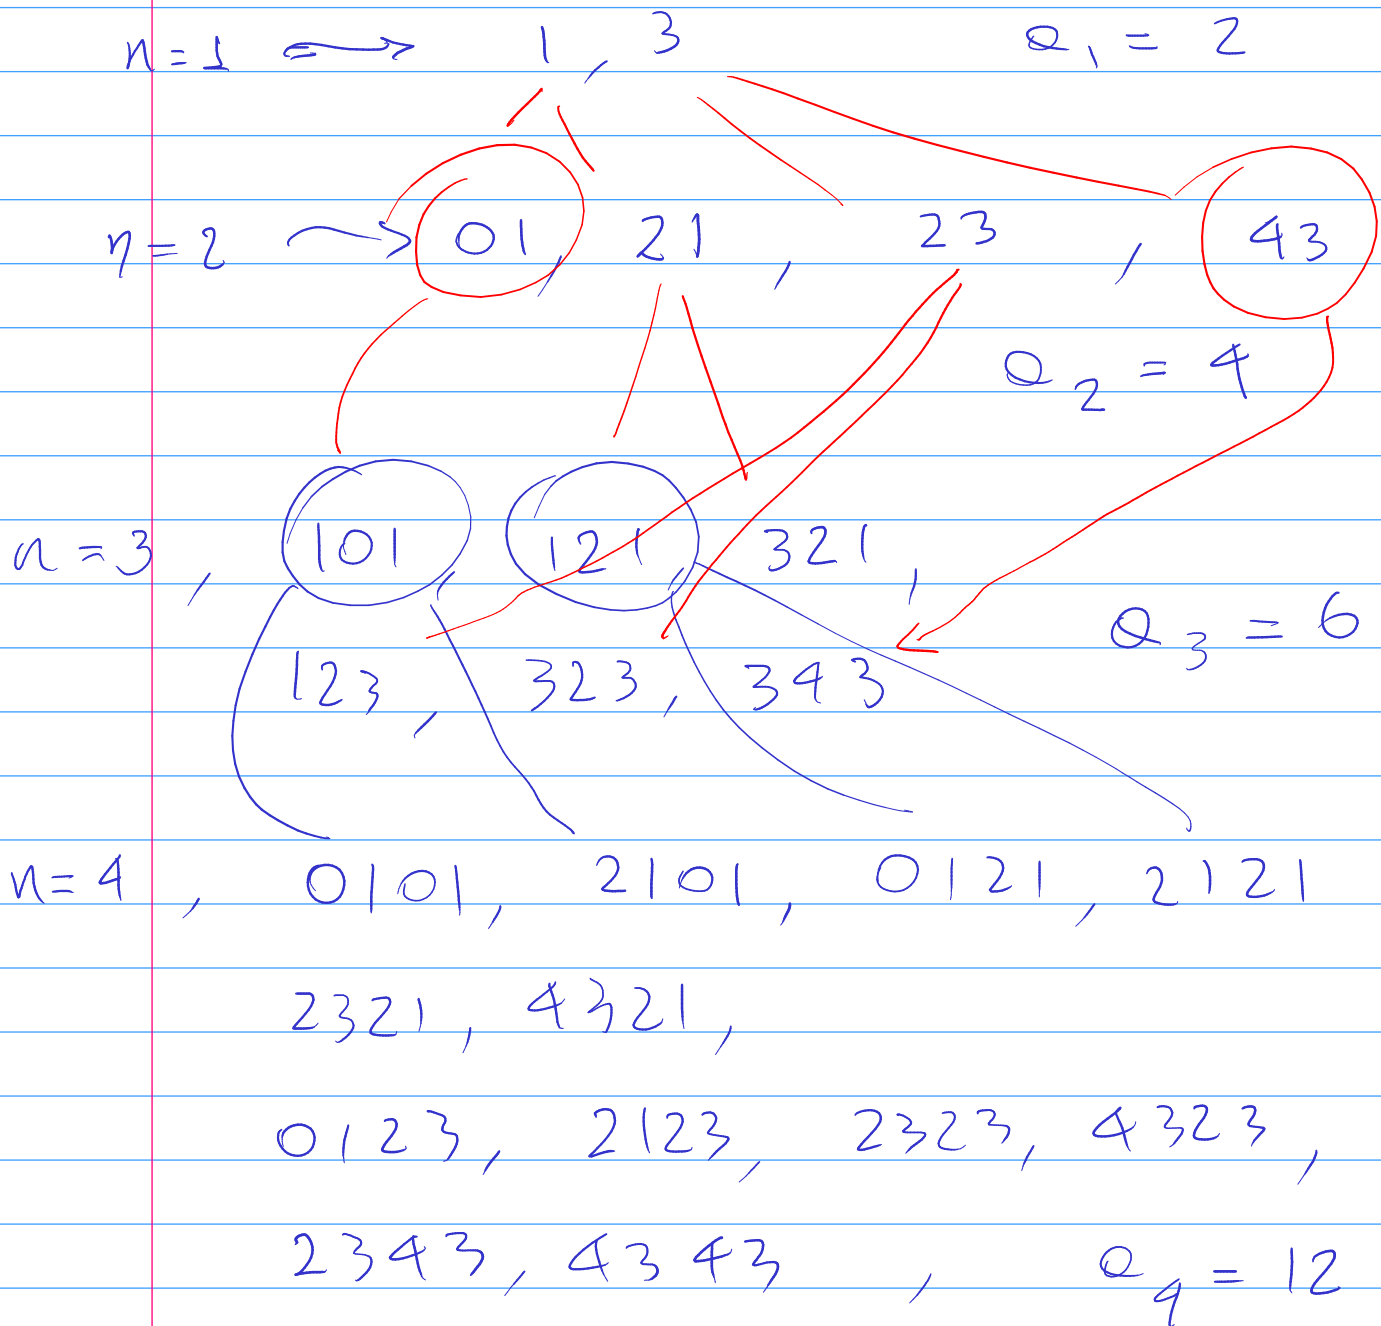 n = 1 → 1, 3 a₁ = 2
n = 2 → 01, 21, 23, 43
a₂ = 4
n = 3, 101 121 321,
a₃ = 6
123, 323, 343
n = 4, 0101, 2101, 0121, 2121
2321, 4321,
0123, 2123, 2323, 4323,
2343, 4343, a₄ = 12